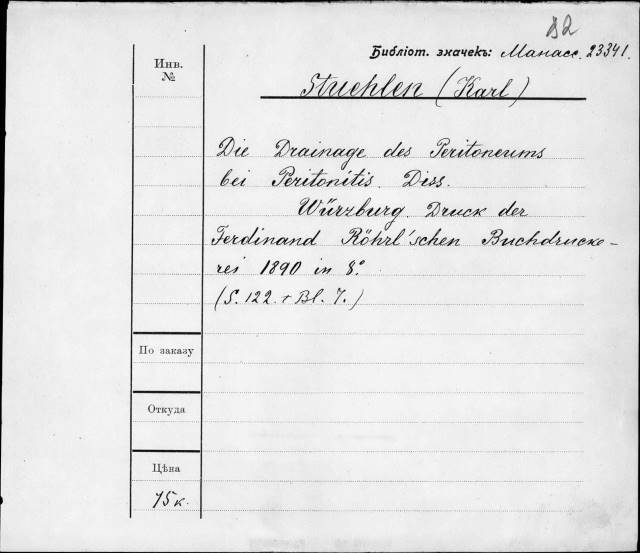 B2
Библіот. значекъ: Манасс. 23341.
Инв. №
Stuehlen (Karl)
Die Drainage des Peritoneums
bei Peritonitis. Diss.
Würzburg. Druck der
Ferdinand Röhrl'schen Buchdrucke-
rei 1890 in 8º.
(S. 122 + Bl. 7.)
По заказу
Откуда
Цѣна
75 к.